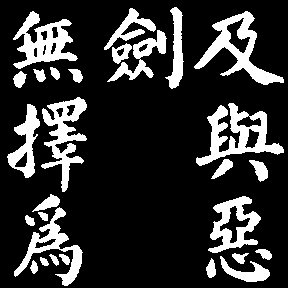 及與惡
劍
無擇爲